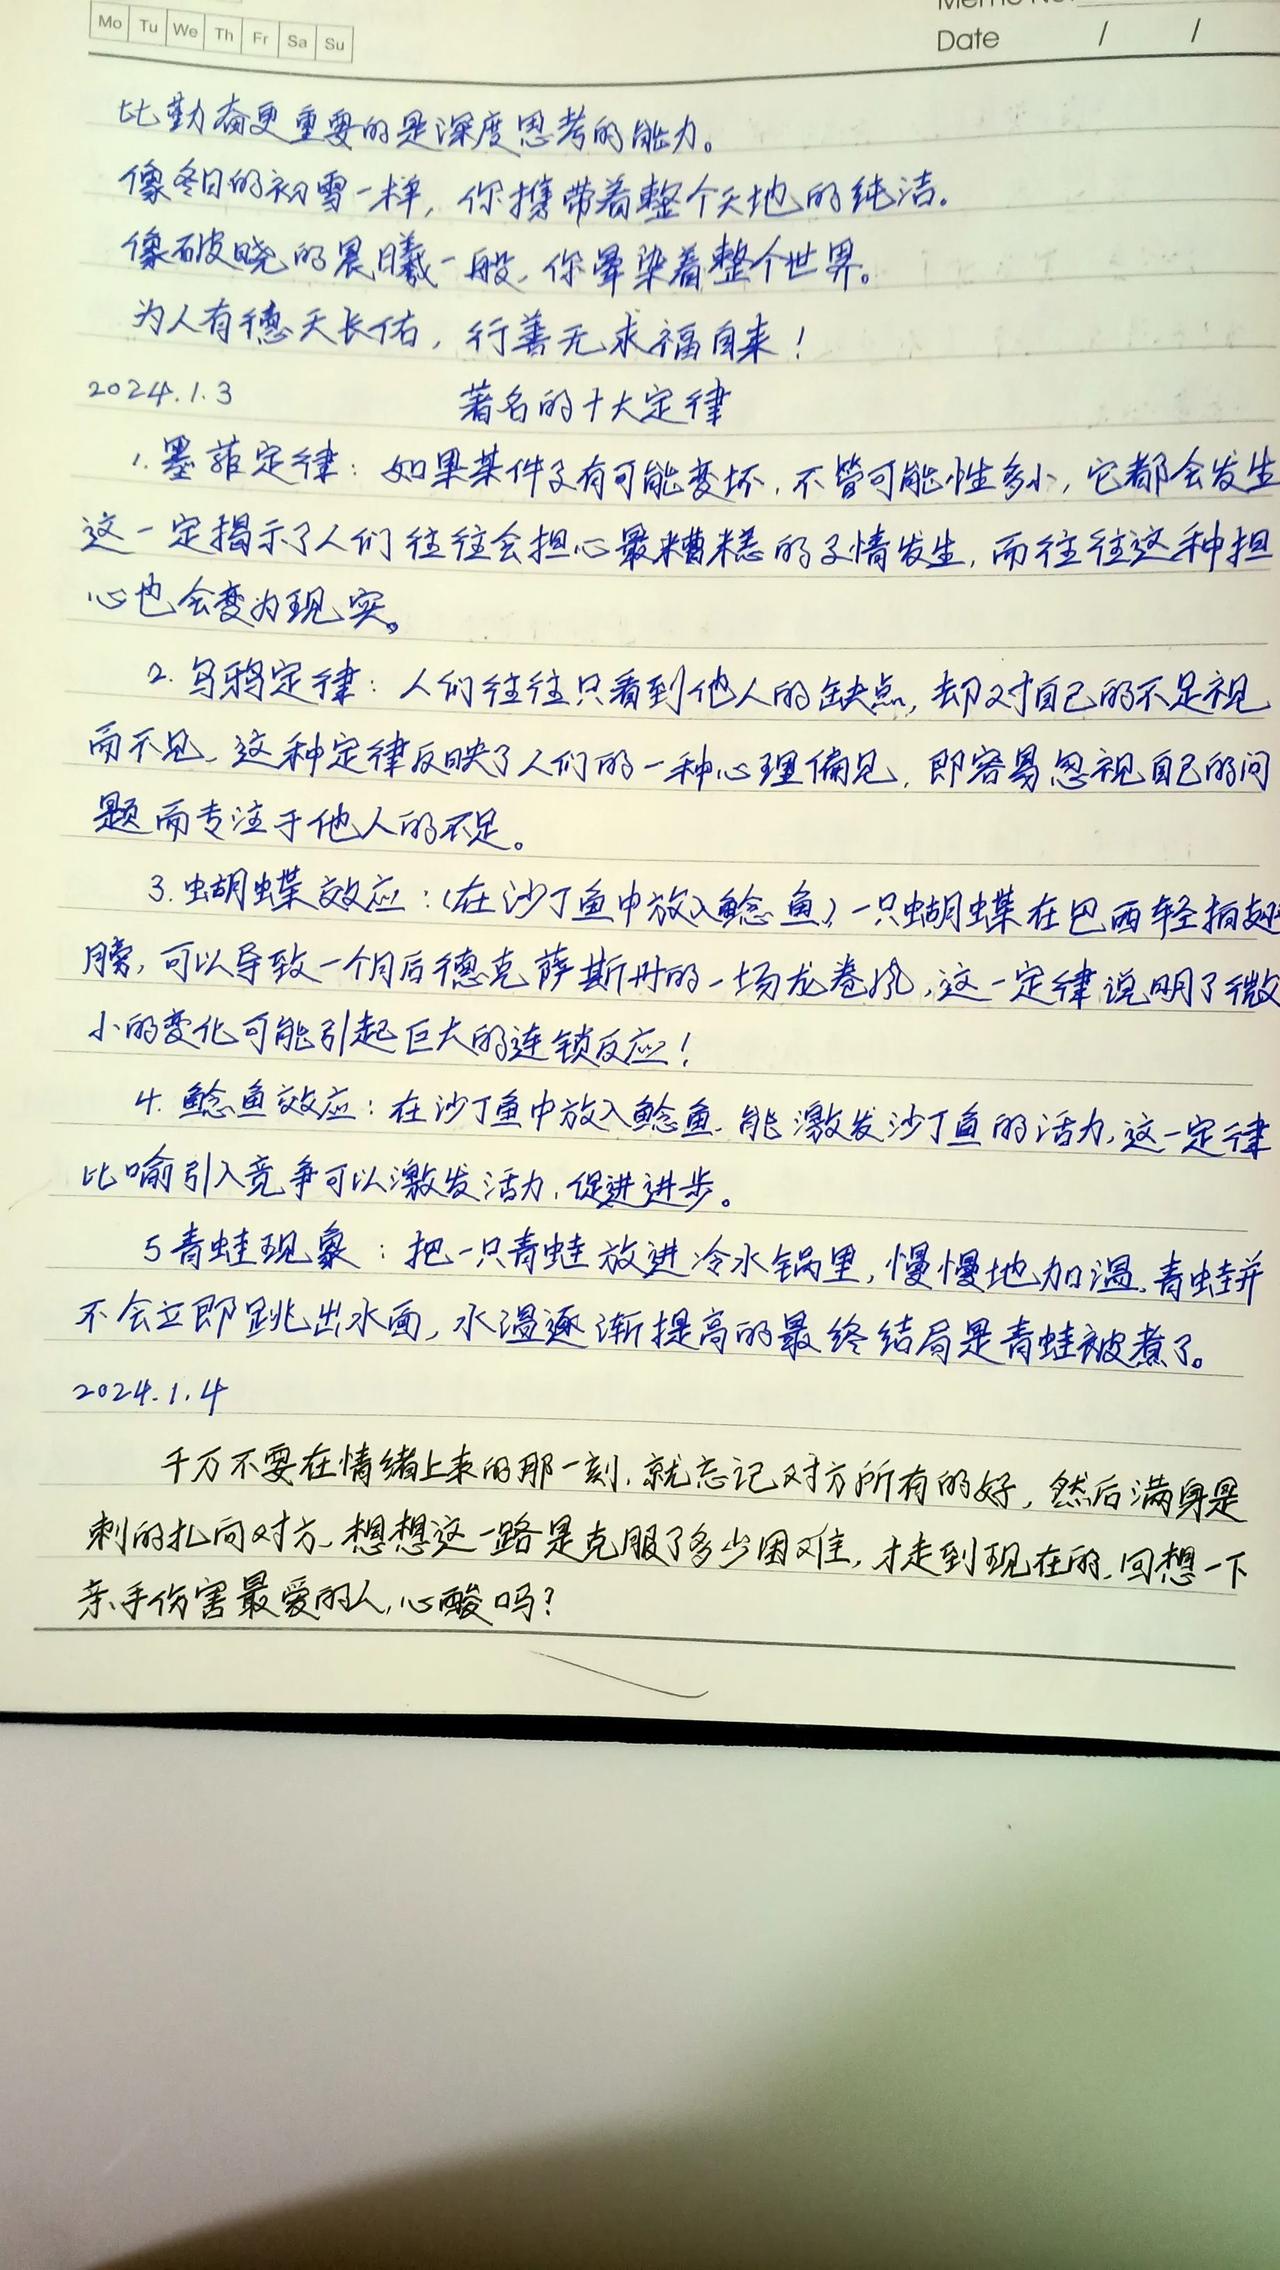 Mo Tu We Th Fr Sa Su
Memo No.
Date / /
比勤奋更重要的是深度思考的能力。
像冬日的初雪一样，你携带着整个天地的纯洁。
像破晓的晨曦一般，你晕染着整个世界。
为人有德天长佑，行善无求福自来！
2024.1.3 著名的十大定律
1.墨菲定律：如果某件事有可能变坏，不管可能性多小，它都会发生
这一定揭示了人们往往会担心最糟糕的事情发生，而往往这种担
心也会变为现实。
2.乌鸦定律：人们往往只看到他人的缺点，却对自己的不足视
而不见、这种定律反映了人们的一种心理偏见，即容易忽视自己的问
题而专注于他人的不足。
3.蝴蝶效应：（在沙丁鱼中放入鲶鱼）一只蝴蝶在巴西轻拍翅
膀，可以导致一个月后德克萨斯州的一场龙卷风，这一定律说明了微
小的变化可能引起巨大的连锁反应！
4.鲶鱼效应：在沙丁鱼中放入鲶鱼、能激发沙丁鱼的活力，这一定律
比喻引入竞争可以激发活力，促进进步。
5青蛙现象：把一只青蛙放进冷水锅里，慢慢地加温，青蛙并
不会立即跳出水面，水温逐渐提高的最终结局是青蛙被煮了。
2024.1.4
千万不要在情绪上来的那一刻，就忘记对方所有的好，然后满身是
刺的扎向对方、想想这一路是克服了多少困难，才走到现在的、回想一下
亲手伤害最爱的人，心酸吗？